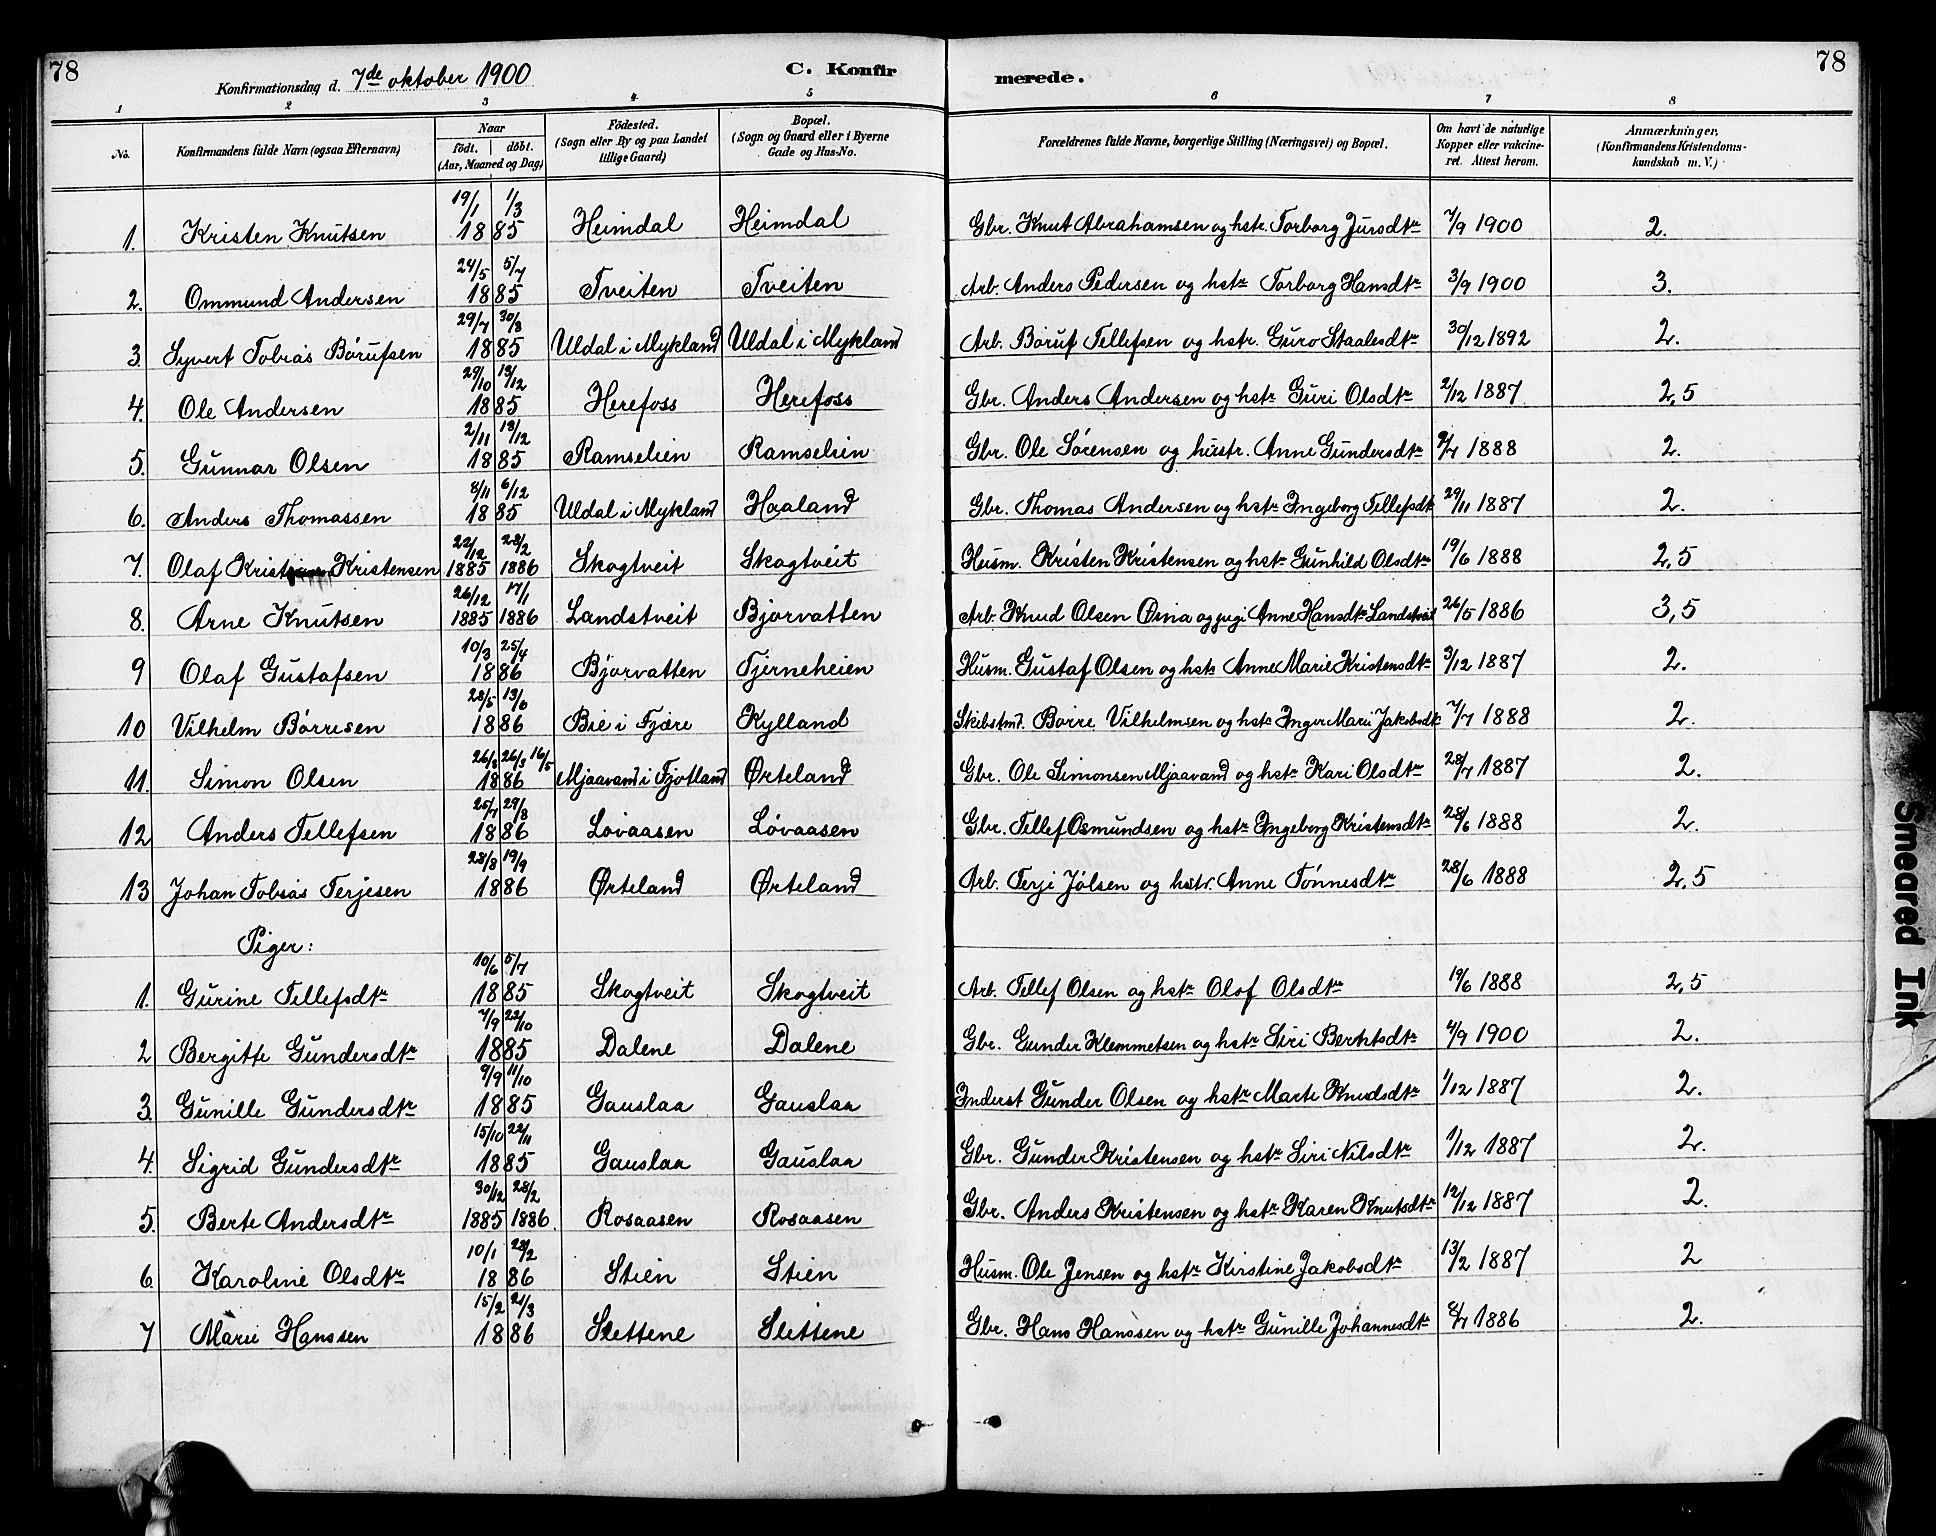 78
Konfirmationsdag d. 7de oktober 1900
C. Konfirmerede.
78
1 2 3 4 5 6 7 8
No. | Konfirmandens fulde Navn (ogsaa Efternavn) | Naar födt. döbt. (Aar, Maaned og Dag) | Födested. (Sogn eller By og paa Landet tillige Gaard) | Bopæl. (Sogn og Gaard eller i Byerne Gade og Hus-No. | Forældrenes fulde Navne, borgerlige Stilling (Næringsvei) og Bopæl. | Om havt de naturlige Kopper eller vakcineret. Attest herom. | Anmærkninger. (Konfirmandens Kristendomskundskab m. V.)
1. Kristen Knutsen 19/1 1/3 1885 Heimdal Heimdal Gbr. Knut Abrahamsen og hstr. Torborg Jursdtr 7/9 1900 2.
2. Ommund Andersen 24/5 5/7 1885 Tveiten Tveiten Arb. Anders Pedersen og hstr Torborg Hansdtr 3/9 1900 3.
3. Syvert Tobias Börufsen 29/7 30/8 1885 Uldal i Mykland Uldal i Mykland Arb. Böruf Tellefsen og hstr. Guro Staalesdtr 30/12 1892 2.
4. Ole Andersen 29/10 13/12 1885 Herefoss Herefoss Gbr. Anders Andersen og hstr Guri Olsdtr 2/12 1887 2,5
5. Gunnar Olsen 2/11 13/12 1885 Ramselien Ramselien Gbr. Ole Sörensen og hustr. Anne Gundersdtr 2/7 1888 2.
6. Anders Thomassen 8/11 6/12 1885 Uldal i Mykland Haaland Gbr. Thomas Andersen og hstr Ingeborg Tellefsdtr 29/11 1887 2.
7. Olaf Kristensen 22/12 1885 28/2 1886 Skogtveit Skogtveit Husm. Kristen Kristensen og hstr Gunhild Olsdtr 19/6 1888 2,5
8. Arne Knutsen 26/12 1885 17/1 1886 Landstveit Bjorvatten Arb. Knud Olsen og pigi Anne Hansdtr Landstveit 26/5 1886 3,5
9 Olaf Gustafsen 10/3 25/4 1886 Bjorvatten Tjerneheien Husm. Gustaf Olsen og hstr Anne Marie Kristensdtr 3/12 1887 2.
10 Vilhelm Börresen 28/5 1886 Bie i Fjære Kylland Skibstmd. Börre Vilhelmsen og hstr Inger Marie Jakobsdtr 7/7 1888 2.
11. Simon Olsen 26/3 16/5 1886 Mjaavand i Fjotland Ørteland Gbr. Ole Simonsen Mjaavand og hstr Kari Olsdtr 28/7 1887 2.
12 Anders Tellefsen 25/7 29/8 1886 Lövaasen Lövaasen Gbr. Tellef Osmundsen og hstr Ingeborg Kristensdtr 28/6 1888 2.
13 Johan Tobias Terjesen 28/8 19/9 1886 Ørteland Ørteland Arb. Terji Jölsen og hstr. Anne Tönnesdtr 28/6 1888 2,5
Piger:
1. Gurine Tellefsdtr 10/6 5/7 1885 Skogtveit Skogtveit Arb. Tellef Olsen og hstr Olof Olsdtr 19/6 1888 2,5
2 Bergitte Gundersdtr 7/9 22/10 1885 Dalene Dalene Gbr. Gunder Klemmetsen og hstr Siri Berntsdtr 4/9 1900 2.
3. Gunille Gundersdtr 9/9 11/10 1885 Gauslaa Gauslaa Inderst Gunder Olsen og hstr Marte Knudsdtr 1/12 1887 2.
4. Sigrid Gundersdtr 15/10 22/11 1885 Gauslaa Gauslaa Gbr. Gunder Kristensen og hstr Siri Nilsdtr 1/12 1887 2.
5. Berte Andersdtr 30/12 1885 28/2 1886. Rosaasen Rosaasen Gbr. Anders Kristensen og hstr Karen Knutsdtr 12/12 1887 2.
6. Karoline Olsdtr 10/1 28/2 1886 Stien Stien Husm. Ole Jensen og hstr Kirstine Jakobsdtr 13/2 1887 2
7 Marie Hanssen 15/2 21/3 1886 Slettene Slettene Gbr. Hans Hanssen og hstr Gunille Johannesdtr 8/7 1886 2.
Smeared Ink